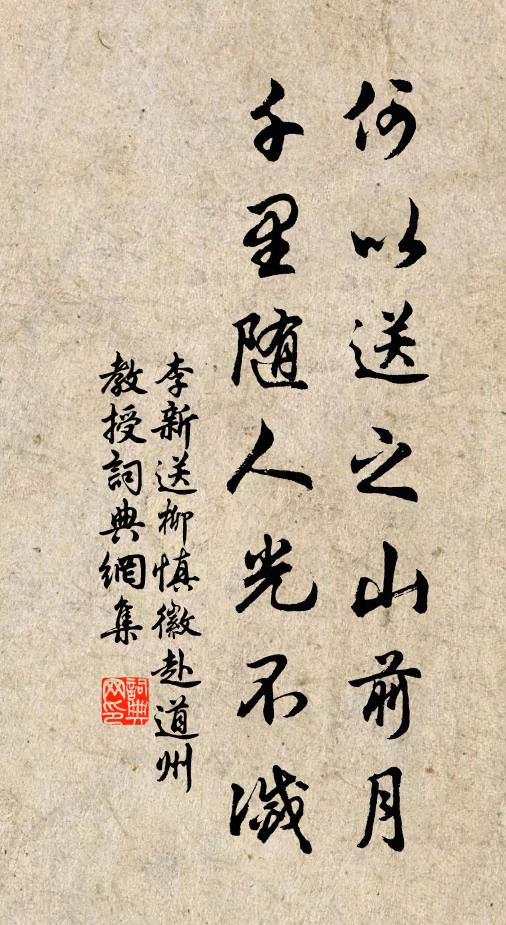 何以送之山前月
千里随人光不滅
李新送柳慎徽赴道州
教授詞典網集
詞典
网印